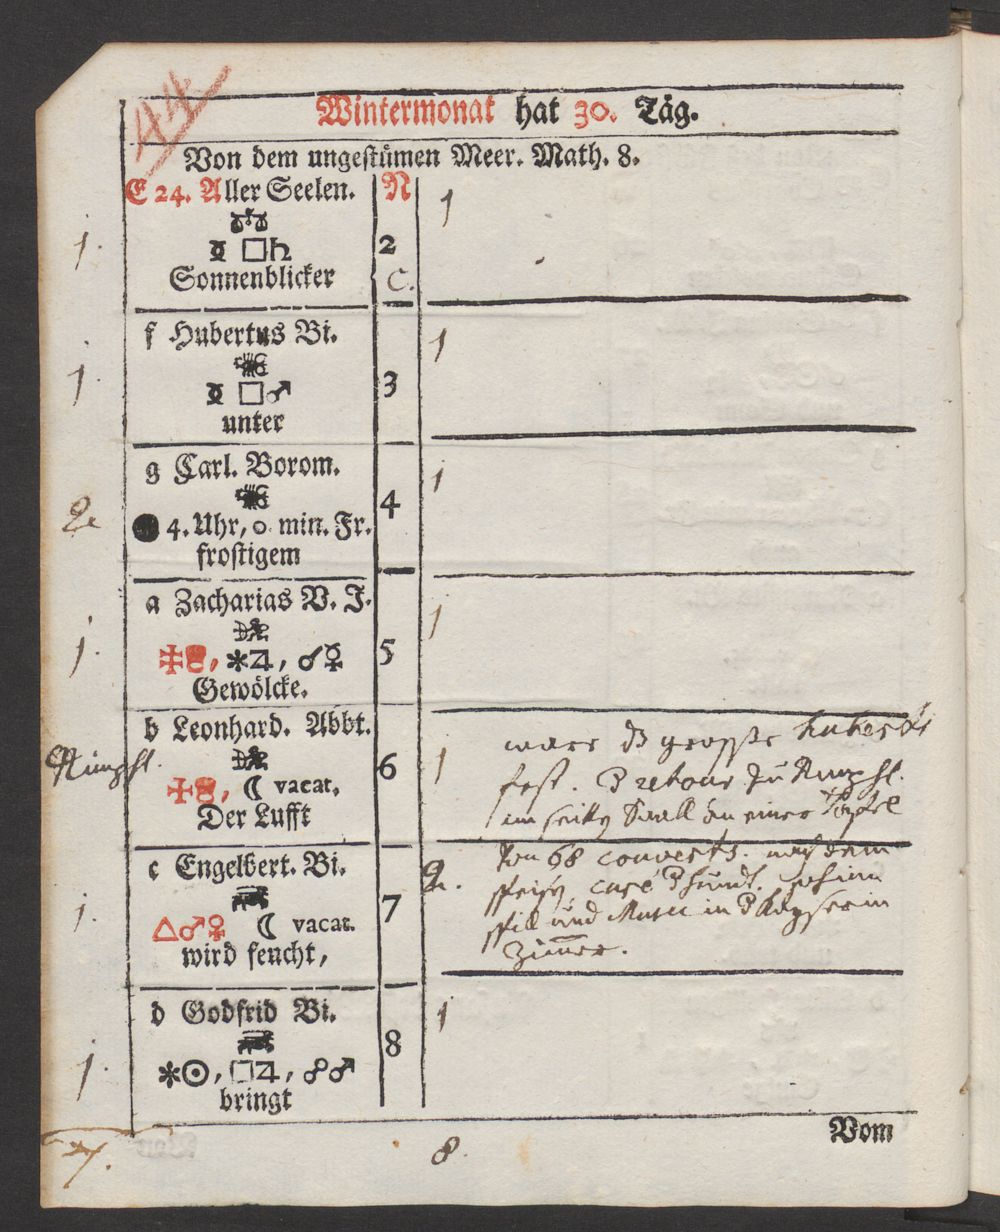 44
Wintermonat hat 30. Täg.
Von dem ungestümen Meer. Math. 8.
E 24. Aller Seelen. N
1
1. ☿ □♄ 2
Sonnenblicker C.
f Hubertus Bi.
1
1. ☿ □♂ 3
unter
g Carl. Borom.
1
2. 4. Uhr, 0 min. Fr. 4
frostigem
a Zacharias V. J.
1
1. *♃, ☌☿ 5
Gewölcke.
b Leonhard. Abbt.
Rumpfl. 1 6
☾ vacat.
Der Lufft
ware dz grosse Huberti
fest. retour zu Rumpfl.
im Saall an einer Tafel
c Engelbert. Bi.
2.
1. △♂♀ ☾ vacat. 7
wird feucht,
von 68 couverts. nach dem
und Music in
Zimer.
d Godfrid Bi.
1
1. *☉, □♃, ☍♂ 8
bringt
Vom
7. 8.